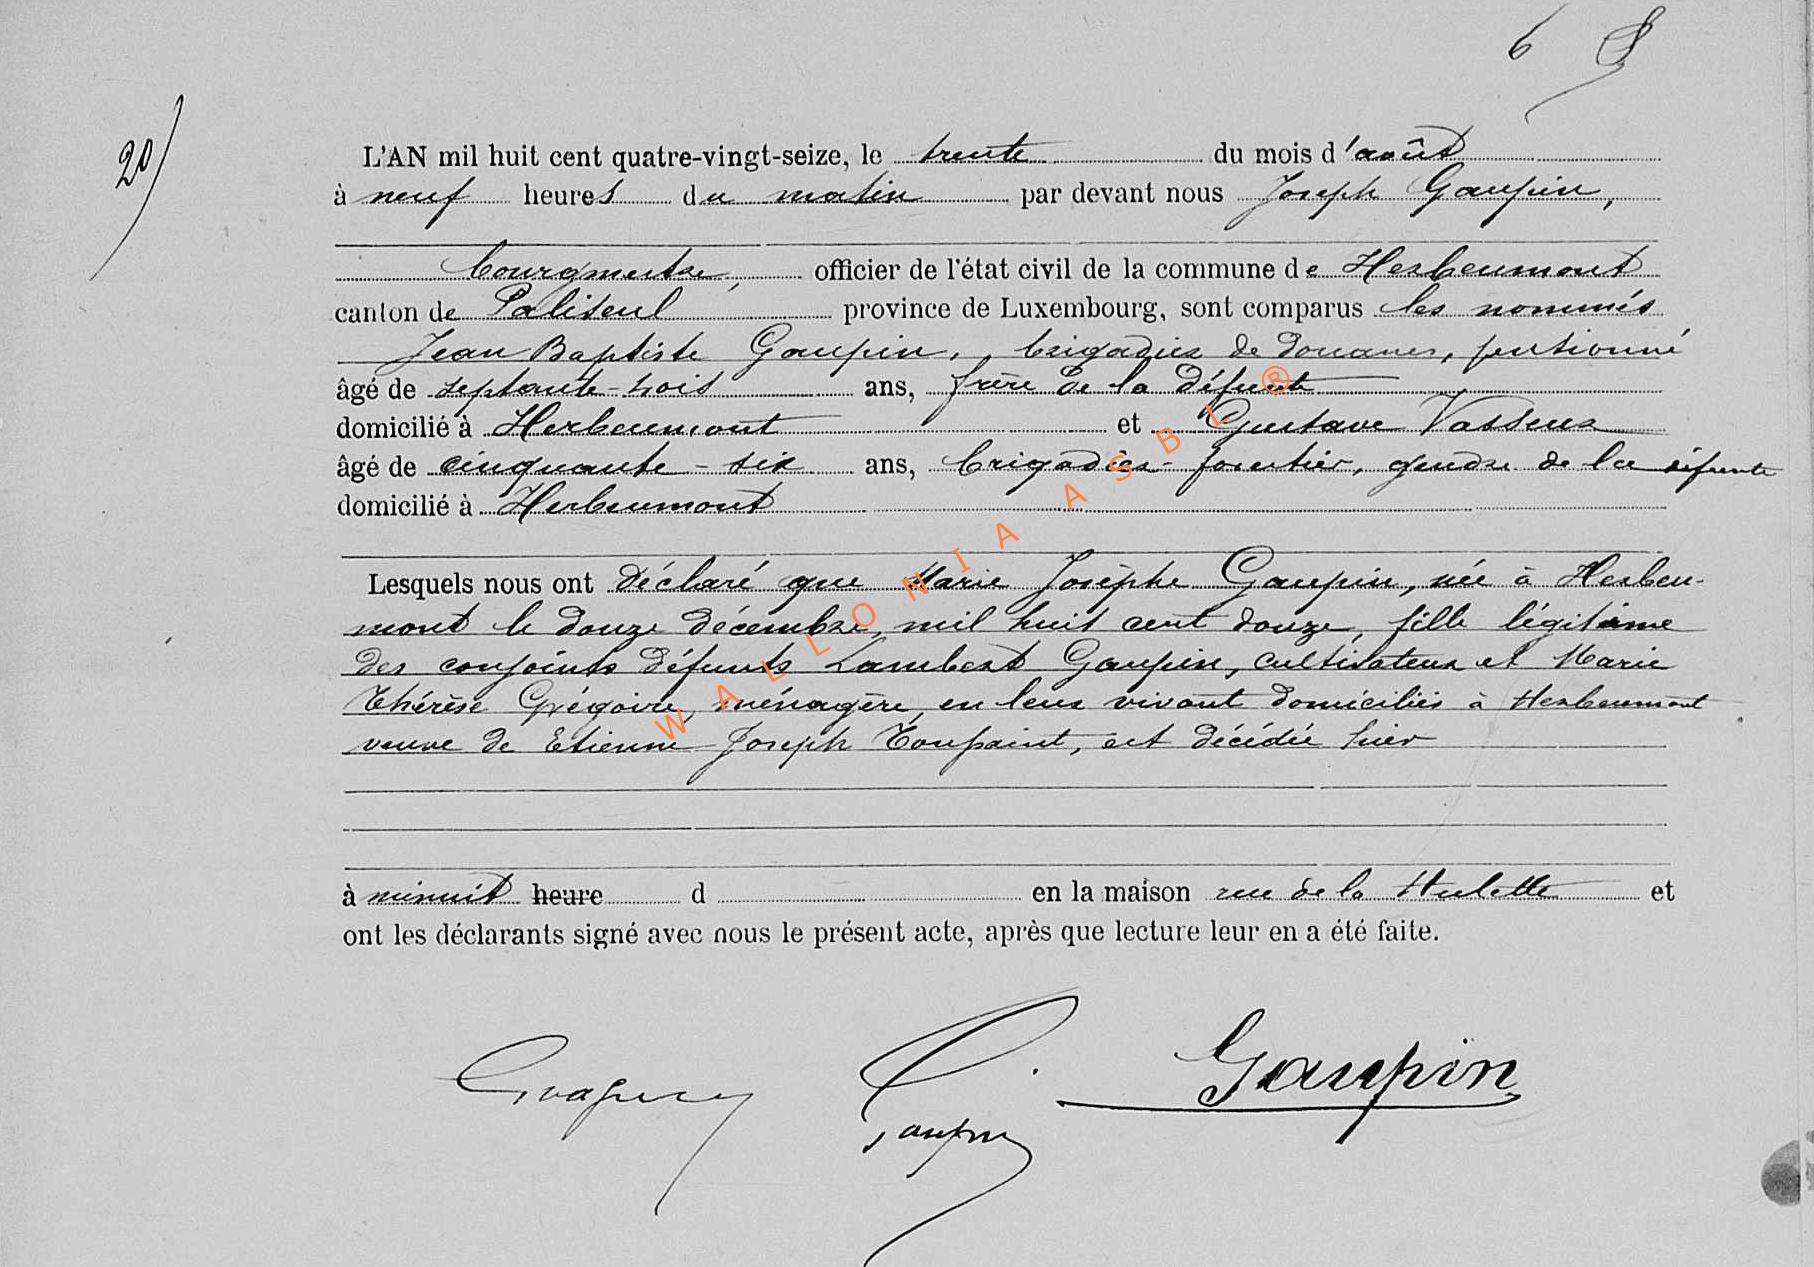 6
20
L'AN mil huit cent quatre-vingt-seize, le trente du mois d'août
à neuf heures du matin par devant nous Joseph Gaupin,
bourgmestre, officier de l'état civil de la commune de Herbeumont
canton de Paliseul province de Luxembourg, sont comparus les nommés
Jean Baptiste Gaupin, brigadier de douanes, pentionné
âgé de septante-trois ans, frère de la défunte
domicilié à Herbeumont et Gustave Vasseur
âgé de cinquante-six ans, brigadier-forestier, gendre de la défunte
domicilié à Herbeumont
Lesquels nous ont déclaré que Marie Josèphe Gaupin, née à Herbeu-
mont le douze décembre mil huit cent douze, fille légitime
des conjoints défunts Lambert Gaupin, cultivateur et Marie
Thérèse Grégoire, ménagère, en leur vivant domiciliés à Herbeumont
veuve de Etienne Joseph Toussaint, est décédée hier
à minuit heure d en la maison rue de la Hulette et
ont les déclarants signé avec nous le présent acte, après que lecture leur en a été faite.
Gaupin
Gaupin
WALLONIA ASBL ®